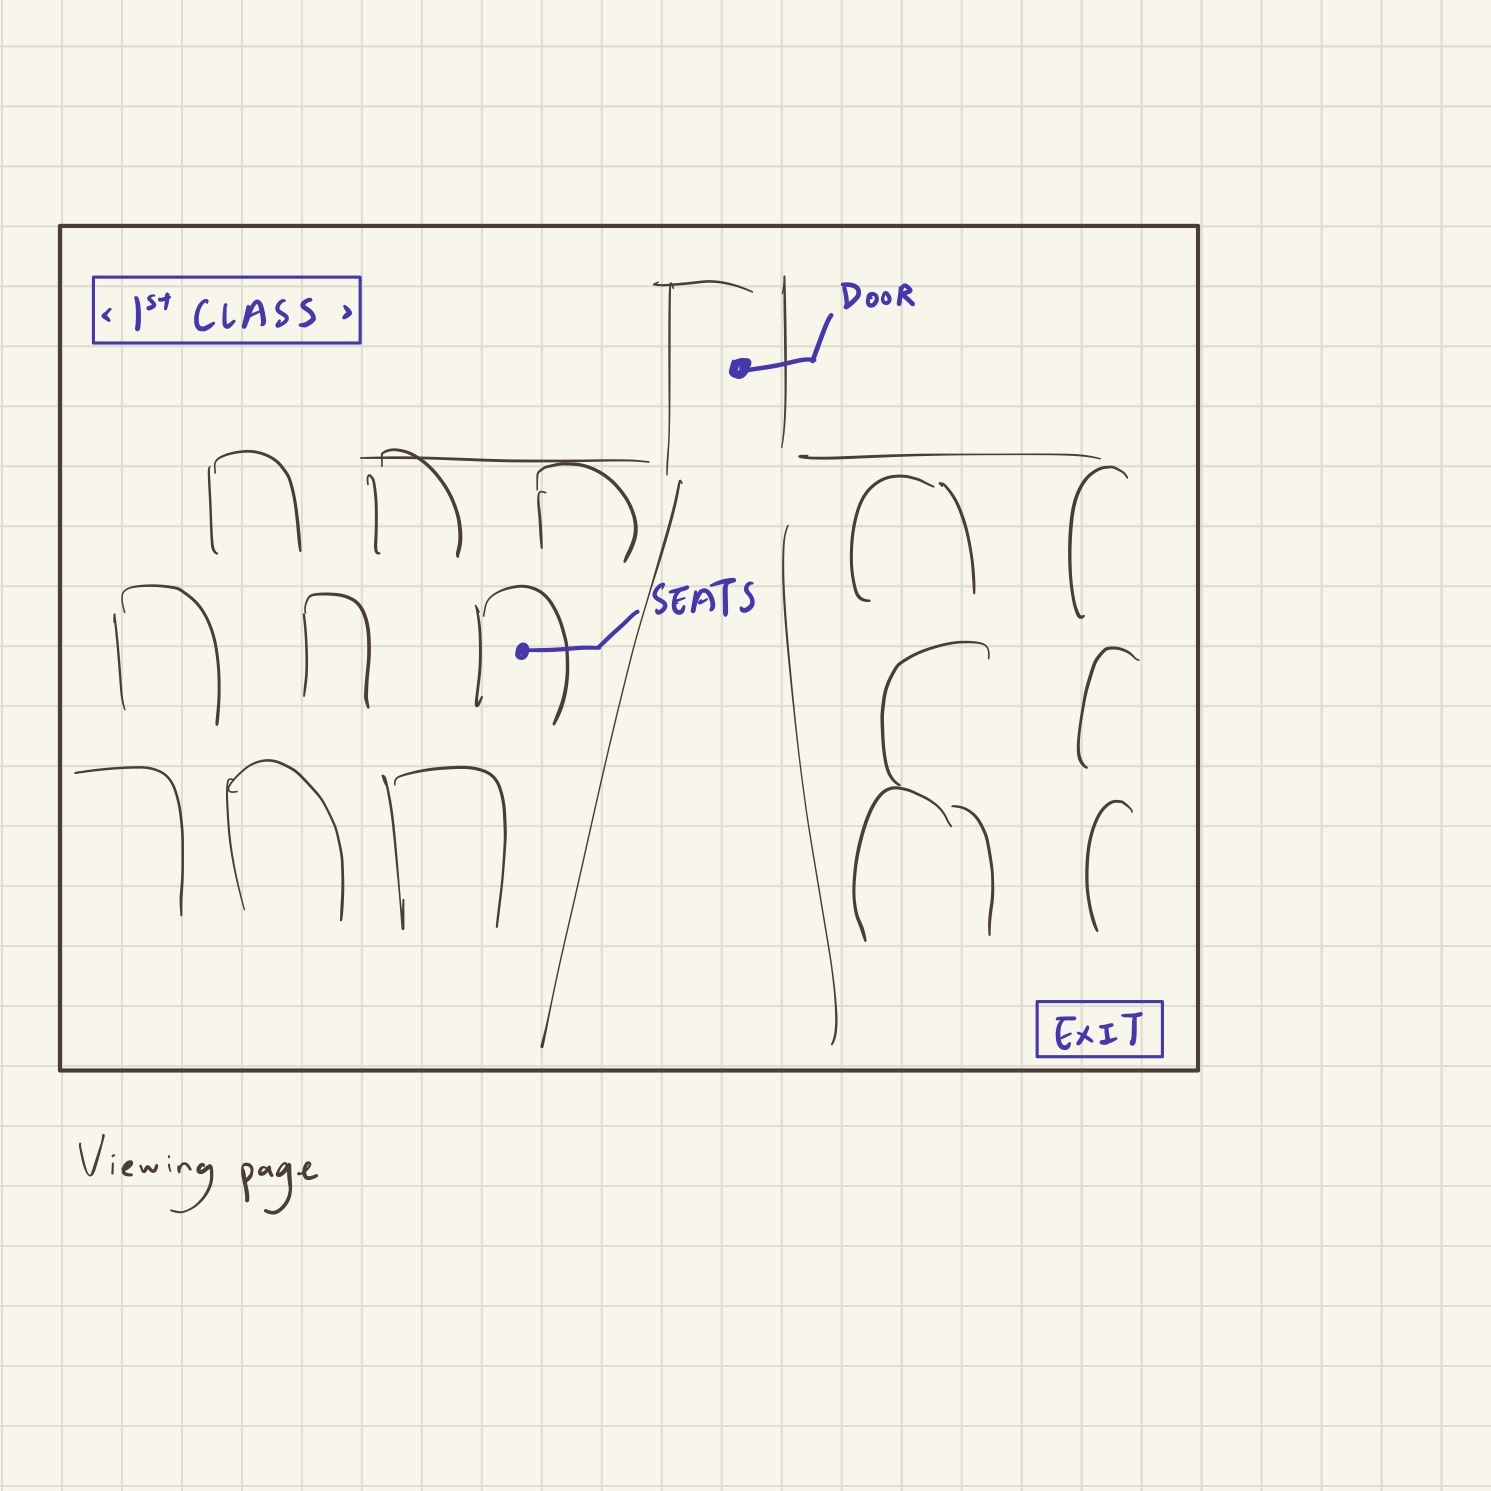 < 1st CLASS >
DOOR
SEATS
EXIT
Viewing page